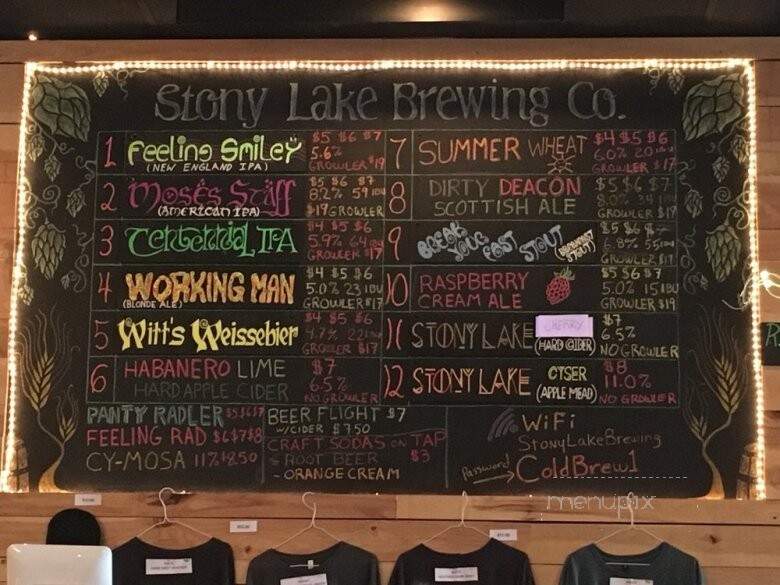 Stony Lake Brewing Co.
1 Feeling Smiley
(NEW ENGLAND IPA)
$5 $6 $7
5.6%
GROWLER $19
2 Moses Stiff
(AMERICAN IPA)
$5 $6 $7
8.2% 59 IBU
$19 GROWLER
3 Centennial IPA
$4 $5 $6
5.9% 64 IBU
GROWLER $17
4 WORKING MAN
(BLONDE ALE)
$4 $5 $6
5.0% 23 IBU
GROWLER $17
5 Witt's Weissebier
$4 $5 $6
4.7% 22 IBU
GROWLER $17
6 HABANERO LIME
HARD APPLE CIDER
$7
6.5%
NO GROWLER
7 SUMMER WHEAT
$4 $5 $6
6.0% 20
GROWLER $17
8 DIRTY DEACON
SCOTTISH ALE
$5 $6 $7
8.0% 34
GROWLER $19
9 BREAK YOUR FAST STOUT
(BREAKFAST STOUT)
$5 $6 $7
6.8% 55 IBU
GROWLER $17
10 RASPBERRY
CREAM ALE
$5 $6 $7
5.0% 15 IBU
GROWLER $19
11 STONY LAKE CHERRY
(HARD CIDER)
$7
6.5%
NO GROWLER
12 STONY LAKE CYSER
(APPLE MEAD)
$8
11.0%
NO GROWLER
PANTY RADLER $5 $6 $7
FEELING RAD $6 $7 $8
CY-MOSA 11% $8.50
BEER FLIGHT $7
W/CIDER $7.50
CRAFT SODAS ON TAP
- ROOT BEER $3
- ORANGE CREAM
WiFi
StonyLakeBrewing
Password ColdBrew1
menupix